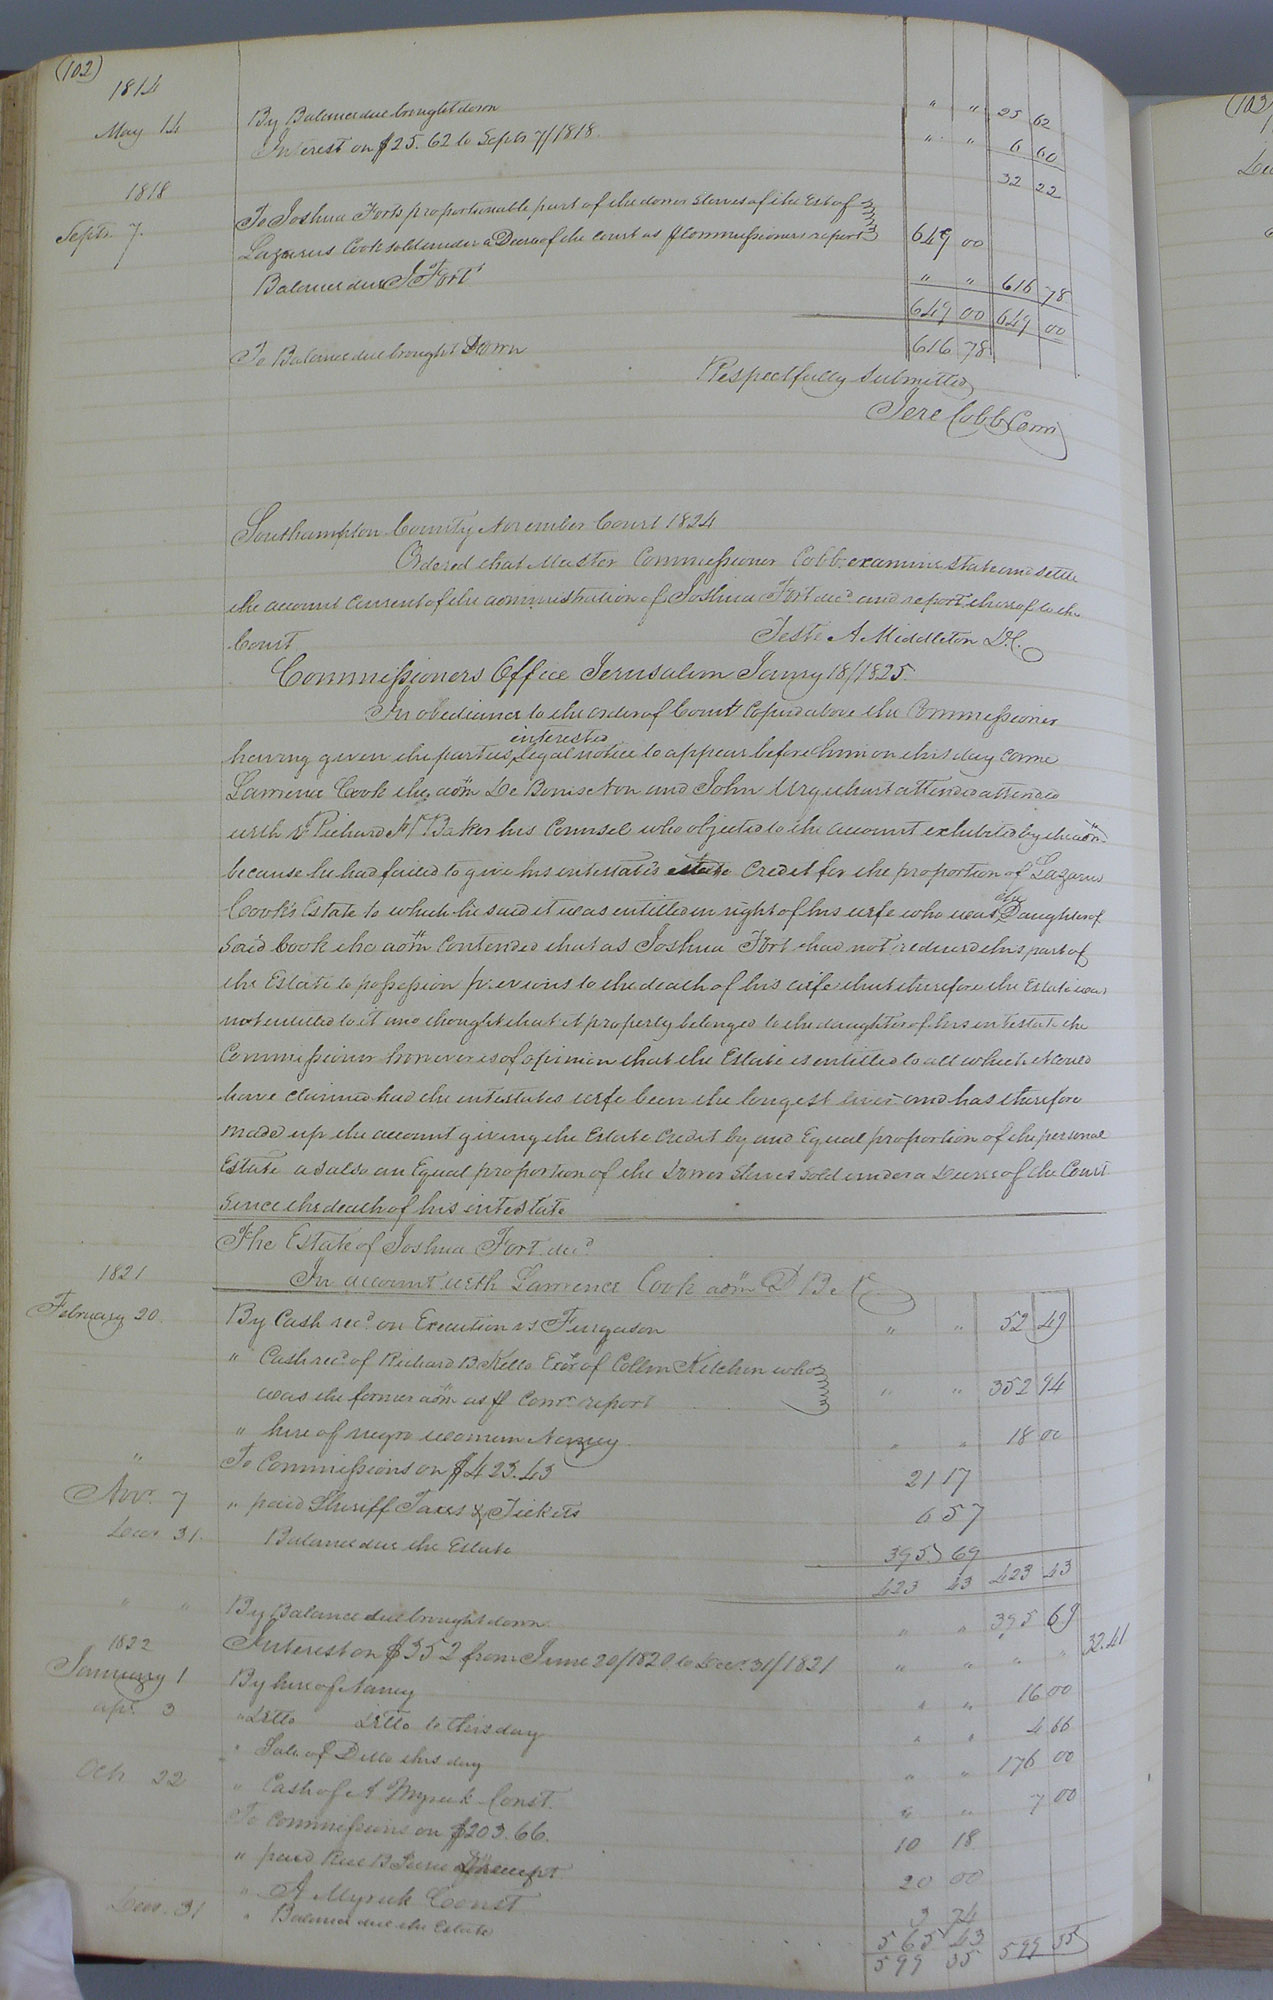 (102)
1814
May 14 By Balance due brought down " " 25 62
Interest on $25.62 to Septr 7/1818 " " 6 60
32 22
1818
Septr. 7. To Joshua Forts proportionable part of the dower slaves of the Est of
Lazarus Cook sold under a Decree of the Court as pr Commissioners report 649 00
Balance due J Fort " " 616 78
649 00 649 00
To Balance due brought Down 616 78
Respectfully Submitted
Jere Cobb Com
Southampton County November Court 1824
Ordered that Master Commissioner Cobb examine state and settle
the account current of the administration of Joshua Fort decd and report thereof to the
Court Teste A Middleton D.C.
Commissioners Office Jerusalem Jany 18/1825
In obediance to the order of Court Copied above the Commissioner
interested
having given the parties legal notice to appear before him on this day come
Lawrence Cook the adm De Bonis Non and John Urquhart attended attended
with Richard H Baker his Counsel who objected to the account exhibited by the adm
because he had failed to give his intestate's estate Credit for the proportion of Lazarus
the
Cook's Estate to which he said it was entitled in right of his wife who was Daughter of
Said Cook the adm contended that as Joshua Fort had not reduced this part of
the Estate to possession previous to the death of his wife that therefore the Estate was
not entitled to it and thought that it properly belonged to the daughter of his intestate the
Commissioner however is of opinion that the Estate is entitled to all which it could
have claimed had the intestates wife been the longest liver and has therefore
made up the account giving the Estate Credit by and Equal proportion of the personal
Estate as also an Equal proportion of the Dower Slaves sold under a Decree of the Court
Since the death of his intestate
The Estate of Joshua Fort decd
In account with Lawrence Cook adm D B N
1821
February 20. By Cash recd on Execution vs Furgason " " 52 49
" Cash recd of Richard B Kello Exor of Collin Kitchen who
was the former adm as pr Comr report " " 352 94
" hire of negro woman Nancy " " 18 00
" To Commissions on $423.43 21 17
Novr 7 " paid Sheriff Taxes & Tickets 6 57
Decr 31. Balance due the Estate 395 69
423 43 423 43
" " By Balance due brought down " " 395 69
Interest on $352 from June 20/1820 to Decr 31/1821 " " " " 32.41
1822
January 1 By hire of Nancy " " 16 00
apr. 3 " Ditto Ditto to this day " " 4 66
" Sale of Ditto this day " " 176 00
Oct 22 " Cash of A Myrick Const. " " 7 00
To Commissions on $203.66. 10 18
" paid B receipt 20 00
" A Myrick Const 3 74
Decr. 31 " Balance due the Estate 565 43
599 35 599 35
(103)